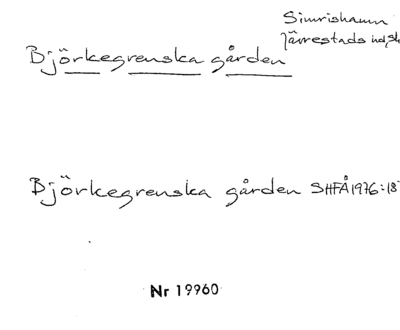 Simrishamn
Järrestads hd, Sk
Björkegrenska gården
Björkegrenska gården SHFÅ 1976:18
Nr 19960